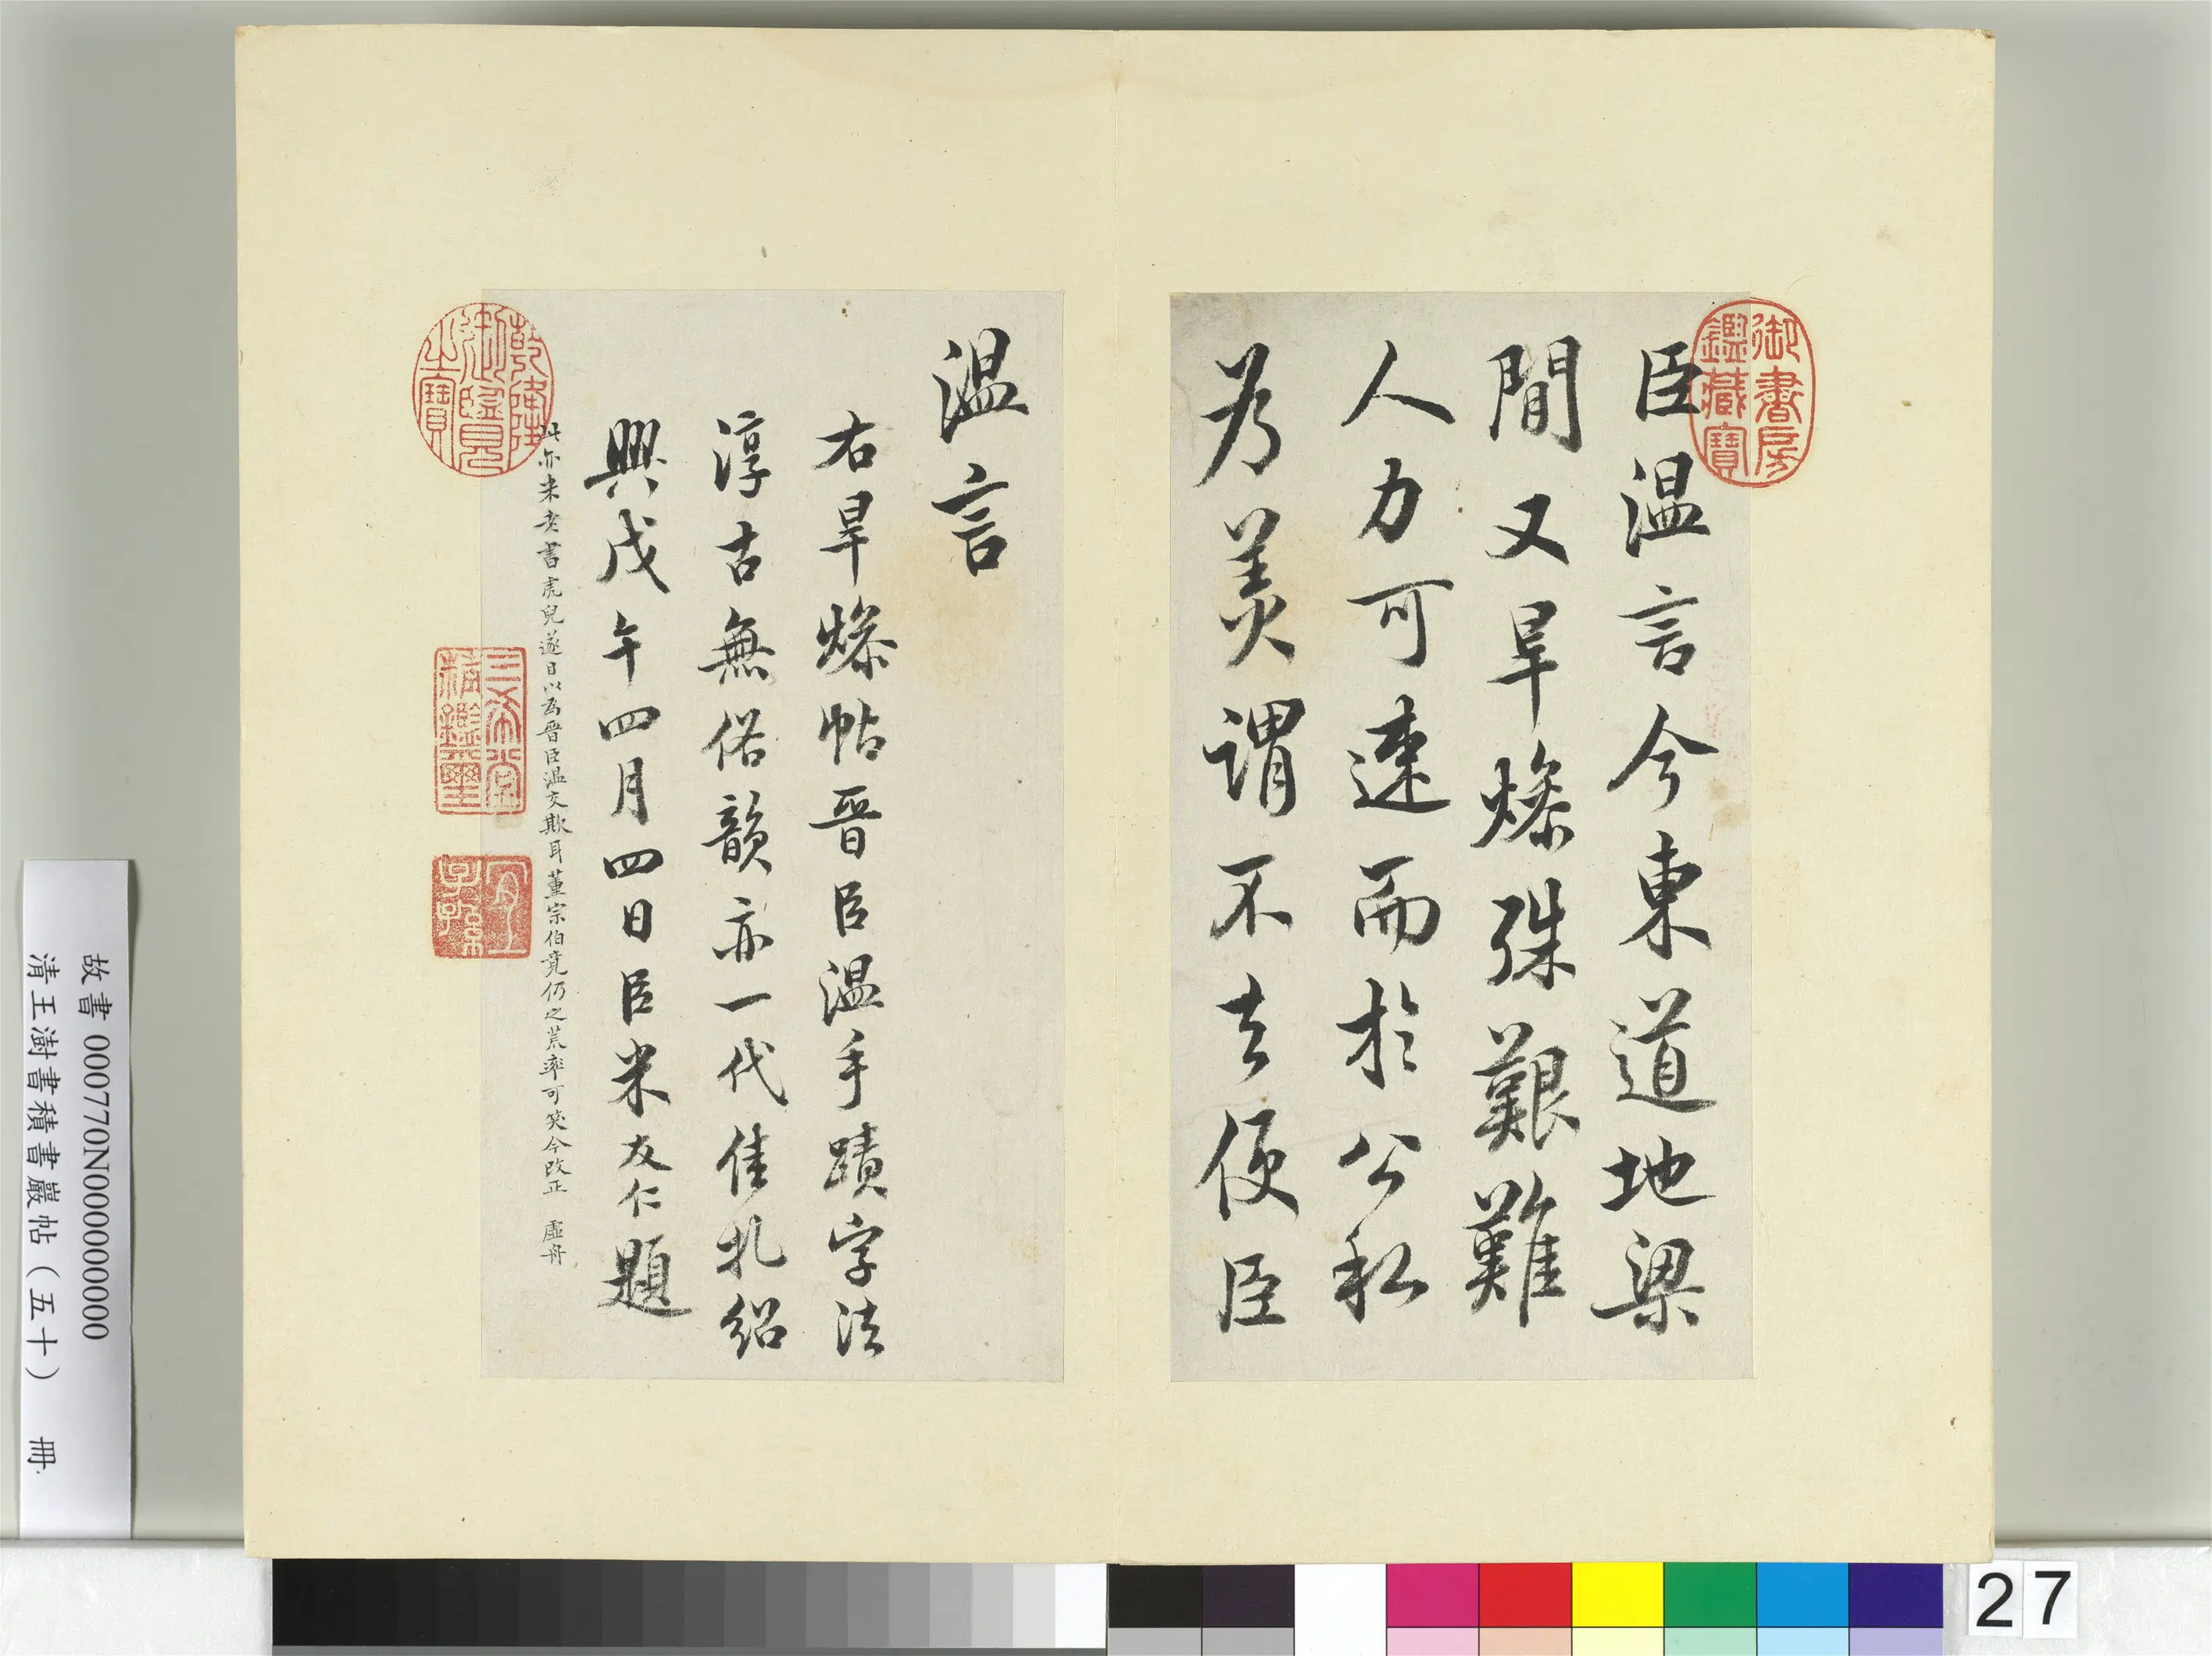 臣温言今東道地梁
間又旱燥殊艱難
人力可速而於公私
为美謂不去便臣
温言
右旱燥帖晋臣温手蹟字法
淳古無俗韻亦一代佳札紹
興戊午四月四日臣米友仁題
此亦米老書虎兒遂目以為晉臣温文欺耳董宗伯竟仍之荒率可笑今改正 虛舟
御書房鑑藏寶
乾隆御覽之寶
三希堂精鑑璽
宜子孫
故書 000770N000000000
清王澍書積書巖帖（五十） 冊
27